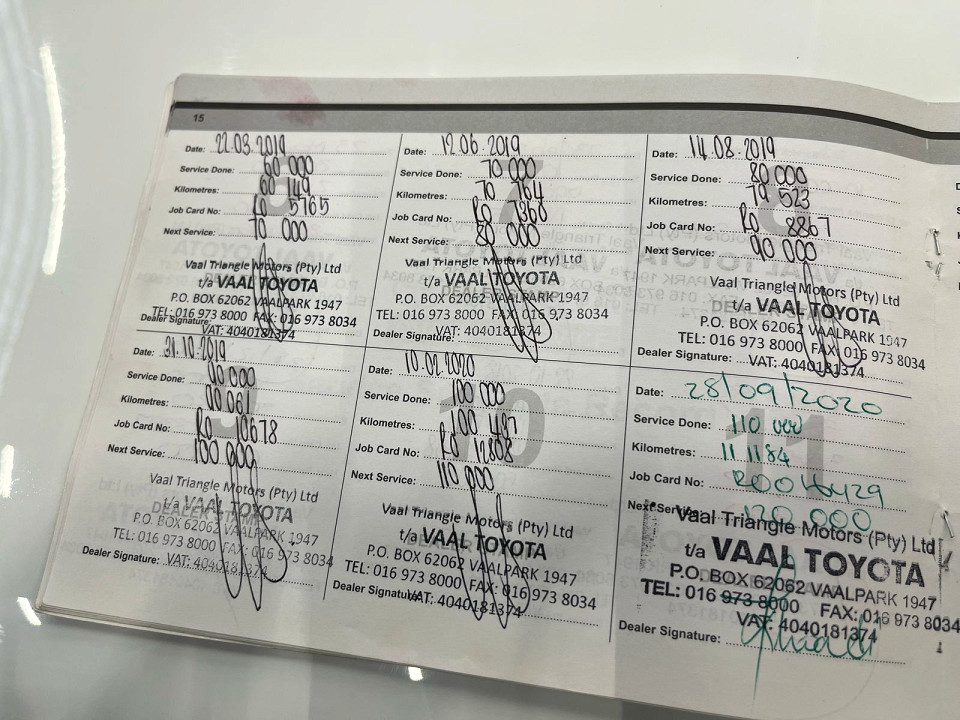 15
Date: 22.03.2019
Service Done: 60 000
Kilometres: 60 149
Job Card No: RO 5765
Next Service: 70 000
Vaal Triangle Motors (Pty) Ltd
t/a VAAL TOYOTA
P.O. BOX 62062 VAALPARK 1947
TEL: 016 973 8000 FAX: 016 973 8034
Dealer Signature:
VAT: 4040181374
Date: 12.06.2019
Service Done: 70 000
Kilometres: 70 764
Job Card No: RO 7368
Next Service: 80 000
Vaal Triangle Motors (Pty) Ltd
t/a VAAL TOYOTA
P.O. BOX 62062 VAALPARK 1947
TEL: 016 973 8000 FAX: 016 973 8034
Dealer Signature:
VAT: 4040181374
Date: 14.08.2019
Service Done: 80 000
Kilometres: 79 523
Job Card No: RO 8867
Next Service: 90 000
Vaal Triangle Motors (Pty) Ltd
t/a VAAL TOYOTA
P.O. BOX 62062 VAALPARK 1947
TEL: 016 973 8000 FAX: 016 973 8034
Dealer Signature: VAT: 4040181374
Date: 31.10.2019
Service Done: 90 000
Kilometres: 90 061
Job Card No: RO 10678
Next Service: 100 000
Vaal Triangle Motors (Pty) Ltd
t/a VAAL TOYOTA
P.O. BOX 62062 VAALPARK 1947
TEL: 016 973 8000 FAX: 016 973 8034
Dealer Signature: VAT: 4040181374
10
Date: 10.02.2020
Service Done: 100 000
Kilometres: 100 497
Job Card No: RO 12808
Next Service: 110 000
Vaal Triangle Motors (Pty) Ltd
t/a VAAL TOYOTA
P.O. BOX 62062 VAALPARK 1947
TEL: 016 973 8000 FAX: 016 973 8034
Dealer Signature: VAT: 4040181374
11
Date: 28/09/2020
Service Done: 110 000
Kilometres: 111184
Job Card No:
Next Service: 120 000
Vaal Triangle Motors (Pty) Ltd
t/a VAAL TOYOTA
P.O. BOX 62062 VAALPARK 1947
TEL: 016 973 8000 FAX: 016 973 8034
VAT: 4040181374
Dealer Signature: